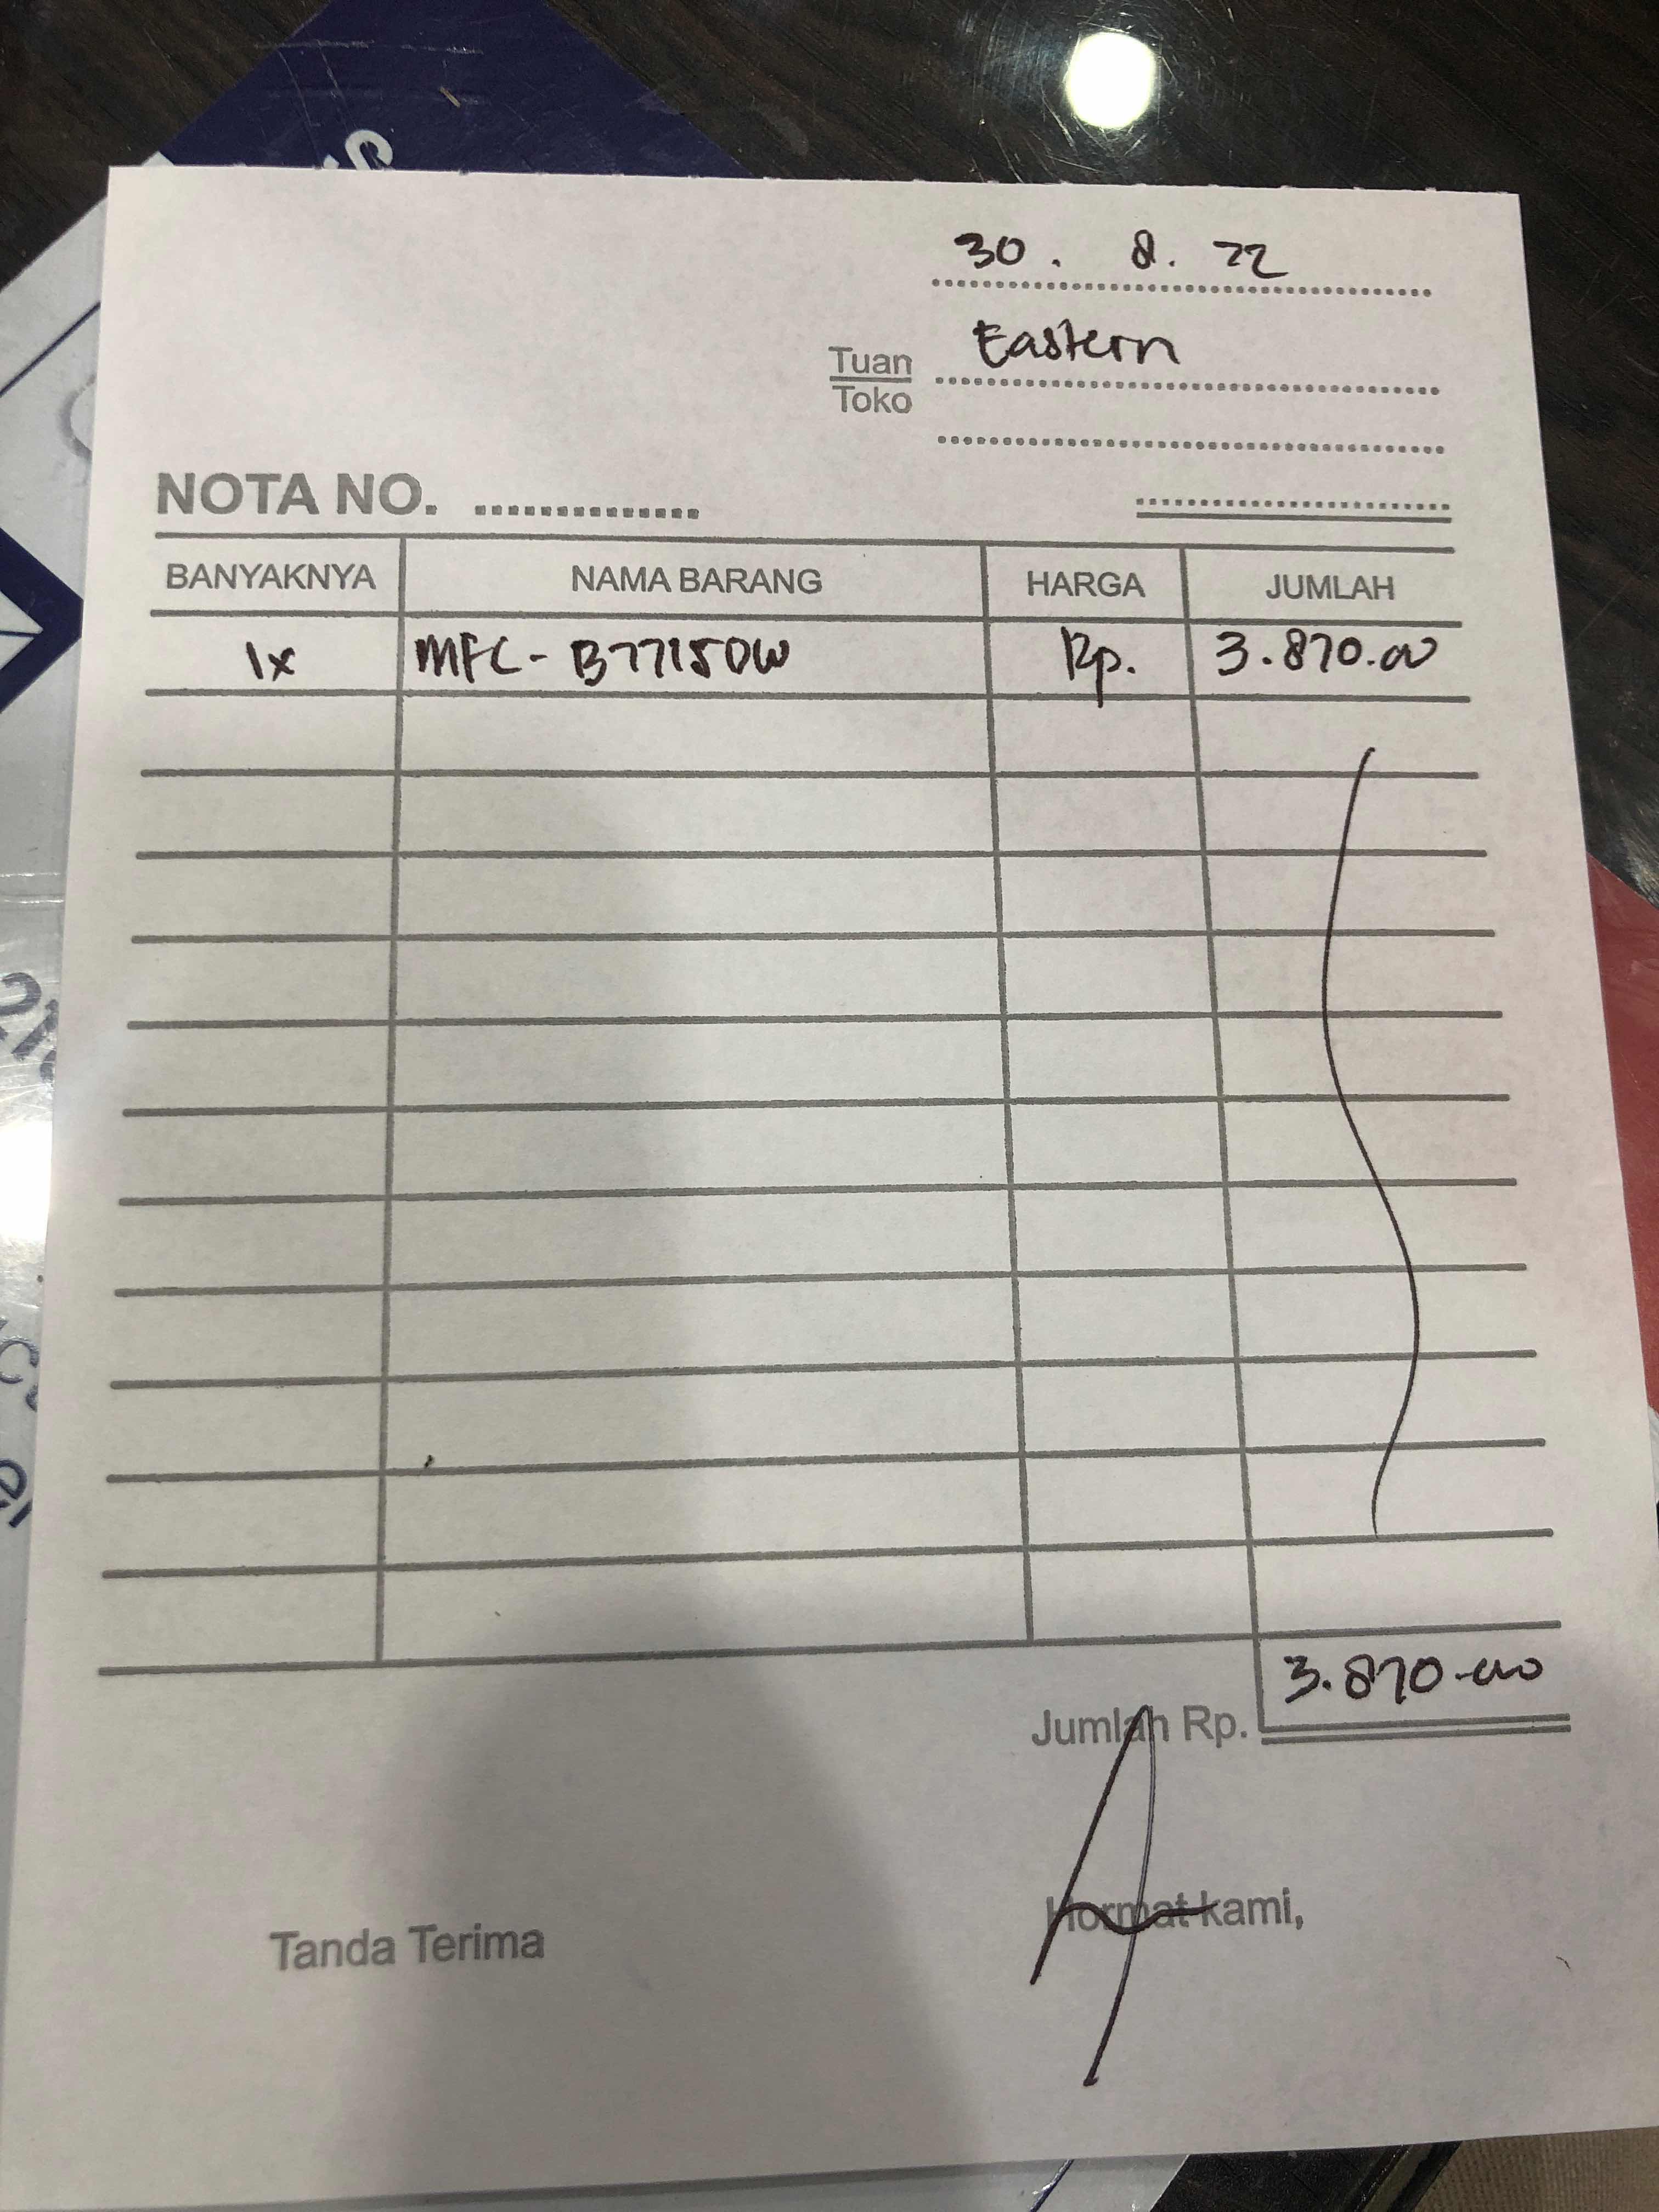 30 . 8. 22
Tuan Eastern
Toko
NOTA NO.
BANYAKNYA NAMA BARANG HARGA JUMLAH
1x MFC- B7715DW Rp. 3.870.00
3.870.00
Jumlah Rp.
Hormat kami,
Tanda Terima